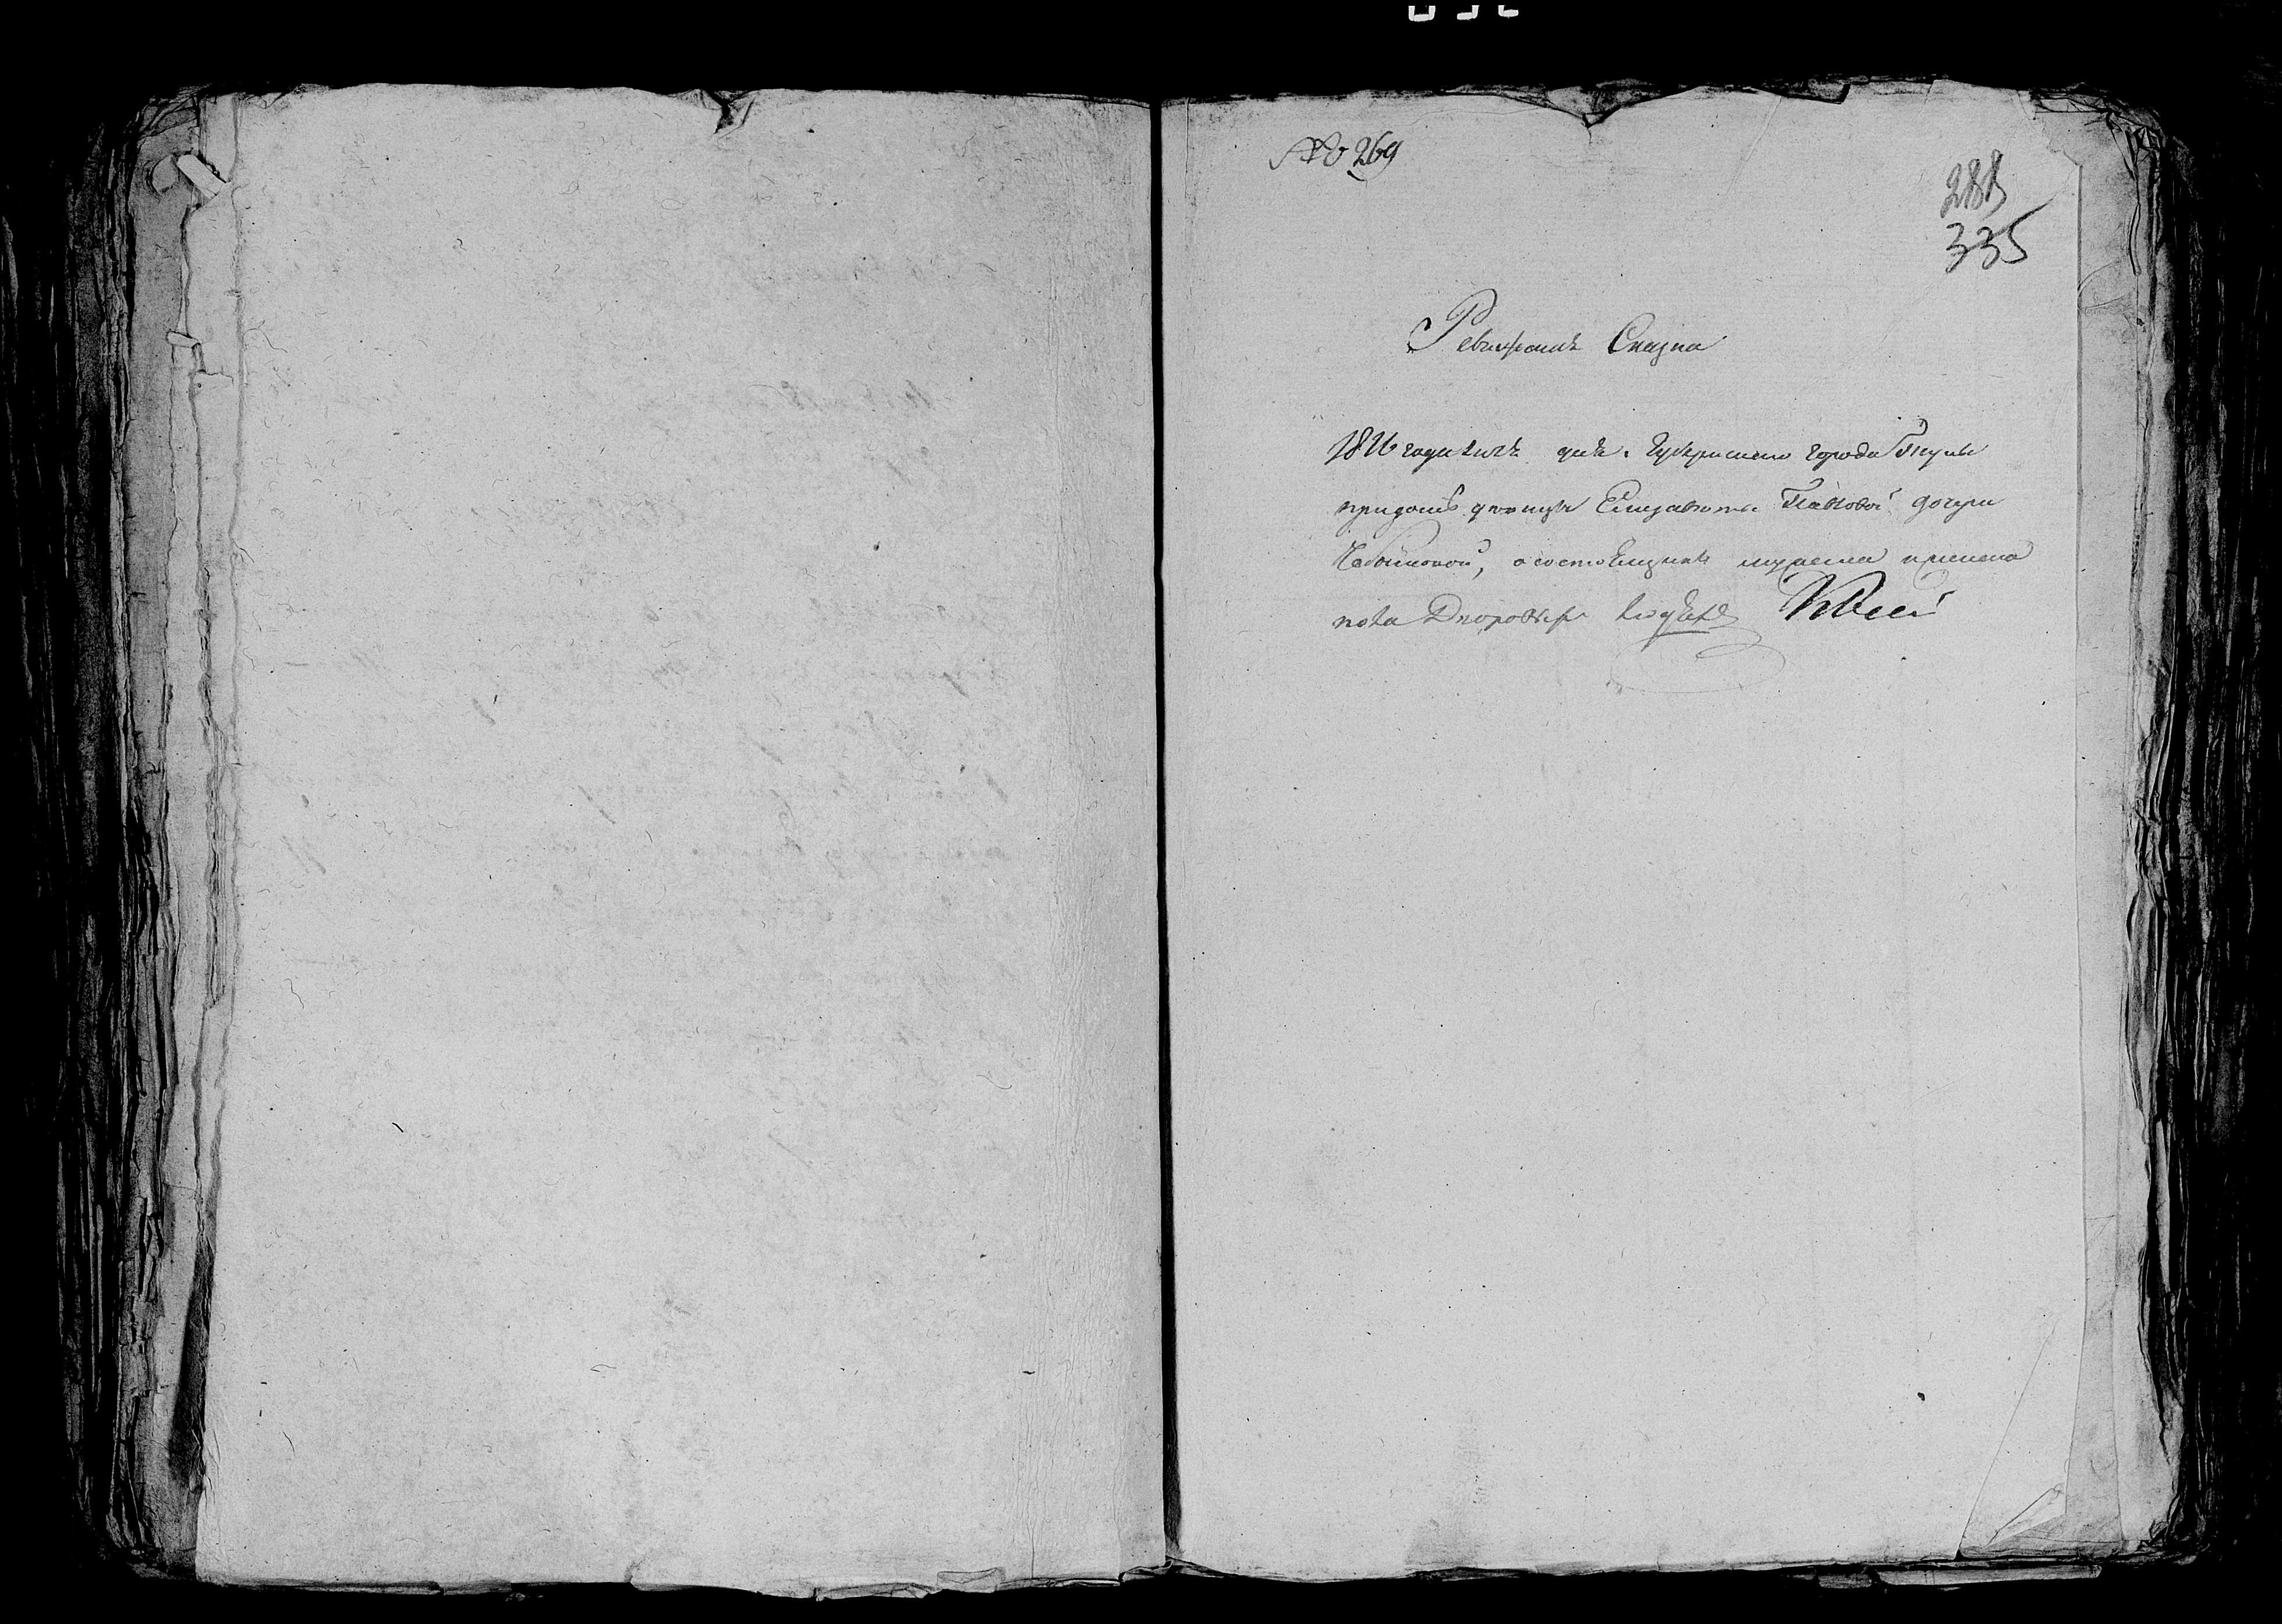 № 269
288
335
Ревижская Сказка
1816 года июля дня. Губернского города Тулы
придоной девицы Елизаветы Павловой дочери
о состоящихъ мужеска и женска
пола Дворовыхъ людехъ